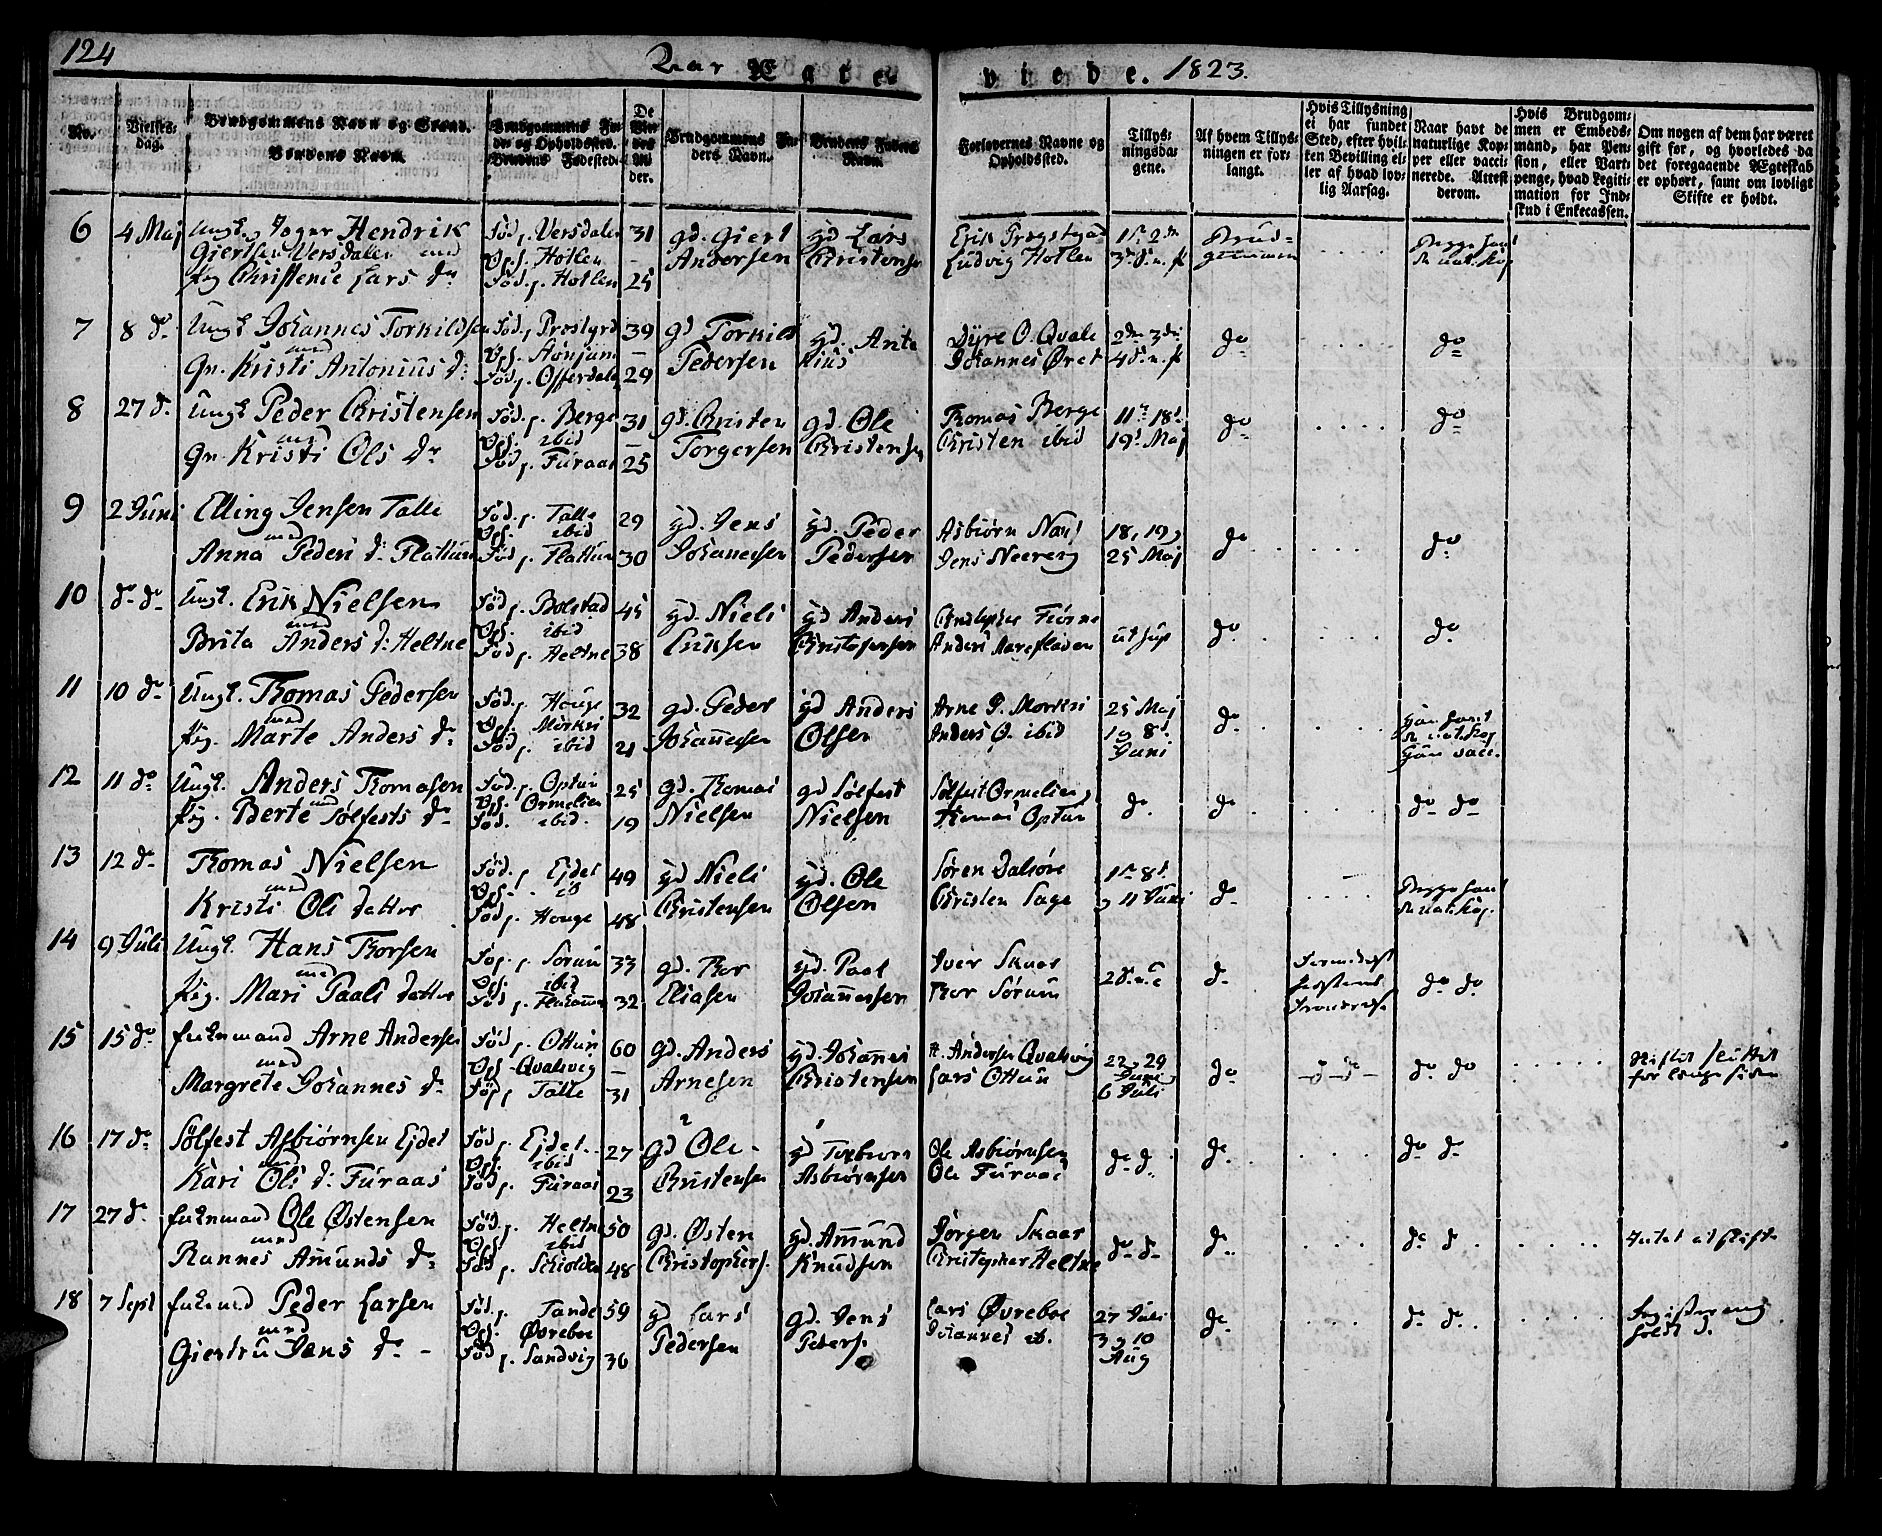 124
Aar Ægte
viede. 1823.
No.
Vielses-
dag.
Brudgommens Navn og Stand.
Brudens Navn.
Brudgommens Fø-
de og Opholdssted.
Brudens Fødested.
De
Vie-
des
Al-
der.
Brudgommens Fa-
ders Navn.
Brudens Faders
Navn.
Forlovernes Navne og
Opholdssted.
Tillys-
ningsda-
gene.
Af hvem Tillys-
ningen er for-
langt.
Hvis Tillysning
ei har fundet
Sted, efter hvil-
ken Bevilling el-
ler af hvad lov-
lig Aarsag.
Naar havt de
naturlige Kop-
per eller vacci-
nerede. Attest
derom.
Hvis Brudgom-
men er Embeds-
mand, har Pen-
sion, eller Vart-
penge, hvad Legiti-
mation for Ind-
skud i Enkecassen.
Om nogen af dem har været
gift før, og hvorledes da
det foregaaende Ægteskab
er ophørt, samt om lovligt
Skifte er holdt.
6 4 Maj Ungk. Hendrik
Giertsen Versdalen med
Pig Christence Lars Dr
Fød. p. Versdalen
Ops. Hotlen
Fød. p. Hotlen
31
25
gd. Giert
Andersen
gd Lars
Christensen
Ludvig Hotlen
Brud-
gommen
7 8 do Ungk Johannes Torkildsen
med
Gn. Kristi Antonius d.
Fød. p. Prestgrd
Ops. Aonjum
Fød. p. Offerdale
39
29
gd Torkild
Pedersen
gd. Anto
nius
Dyre O. Qvale
Johannes Øret
do
do
8 27 d. Ungk Peder Christensen
med
Gn. Kristi Ols Dr
Fød. p. Berge
Ops. ibid
Fød. p. Furaas
31
25
gd. Christen
Torgersen
gd. Ole
Christensen
Thomas Berge
Christen ibid
11te 18d
19d Maj
do
do
9 2 Juni Elling Jensen Talle
med
Anna Peders d. Flattum
Fød. p. Talle
Ops. ibid
Fød. p. Flattum
29
30
gd. Jens
Johannesen
gd. Peder
Pedersen
Asbiørn
Jens Neereng
18, 19,
25 Maj
do
do
10 do do Ungk. Erik Nielsen
med
Brita Anders d. Heltne
Fød. p. Bolstad
Ops. ibid
Fød. p. Heltne
45
38
gd. Niels
Eriksen
gd Anders
Christophersen
Anders
ut sup
do
do
11 10 do Ungk. Thomas Pedersen
med
Pig. Marte Anders Dr
Fød. p. Houge
Ops. Mørkri
Fød. p. ibid
32
21
gd. Peder
Johannesen
gd Anders
Olsen
Arne P. Mørkri
Anders O. ibid
25 Maj
1 og 8d
Juni
do
12 11 do Ungk. Anders Thomasen
med
Pig. Berte Sølfests Dr
Fød. p. Optun
Ops. Ormelien
Fød. ibid.
25
19
gd. Thomas
Nielsen
gd Sølfest
Nielsen
Sølfest Ormelien
Thomas Optun
do
do
do do
13 12 do Thomas Nielsen
med
Kristi Ols datter
Fød. p. Ejdet
Ops. ib
Fød. p. Houge
49
48
gd Niels
Christensen
gd. Ole
Olsen
Søren Dalsøre
Christen
1te 8d
og 11 Juni
do
14 9 Juli Ungk. Hans Thorsen
med
Pig. Mari Paals datter
Fød. p. Sørum
Ops. ibid
33
32
gd. Thor
Eliasen
gd. Paal
Johannessen
Iver Skaar
Thor Sørum
do
do do
15 15 do Enkemand Arne Andersen
med
Margrete Johannes Dr
Fød. p. Ottum
Ops. Qvalsvig
Fød. p. Talle
60
31
gd. Anders
Arnesen
gd. Johannes
Christensen
A. Andersen Qvalsvig
Lars Ottum
22 og 29
Juni
6 Juli
do
do do
for længe siden
16 17 do Sølfest Asbiørnsen Ejdet
med
Kari Ols d. Furaas
Fød. p. Ejdet
Ops. ibid
Fød. p. Furaas
27
23
gd Ole
Christensen
gd Torbiørn
Asbiørnsen
Ole Asbiørnsen
Ole Furaas
do d.
do
do do
17 27 do Enkemand Ole Østensen
med
Rannes Amunds Dr
Fød. p. Heltne
Ops. ibid
Fød. p. Skiolden
50
48
gd. Østen
Christophers.
gd. Amund
Knudsen
Jørgen Skaar
Christopher Heltne
do do
do
do d.
Intet at skifte
18 7 Sept Enkemd Peder Larsen
med
Giertru Jens Dr
Fød. p. Tande
Ops. Øvreboe
Fød. p. Sandvig
59
36
gd Lars
Pedersen
gd. Jens
Peders.
Lars Øvreboe
Johannes ib.
27 Juli
3 og 10
Aug
do
do do
holdt d.